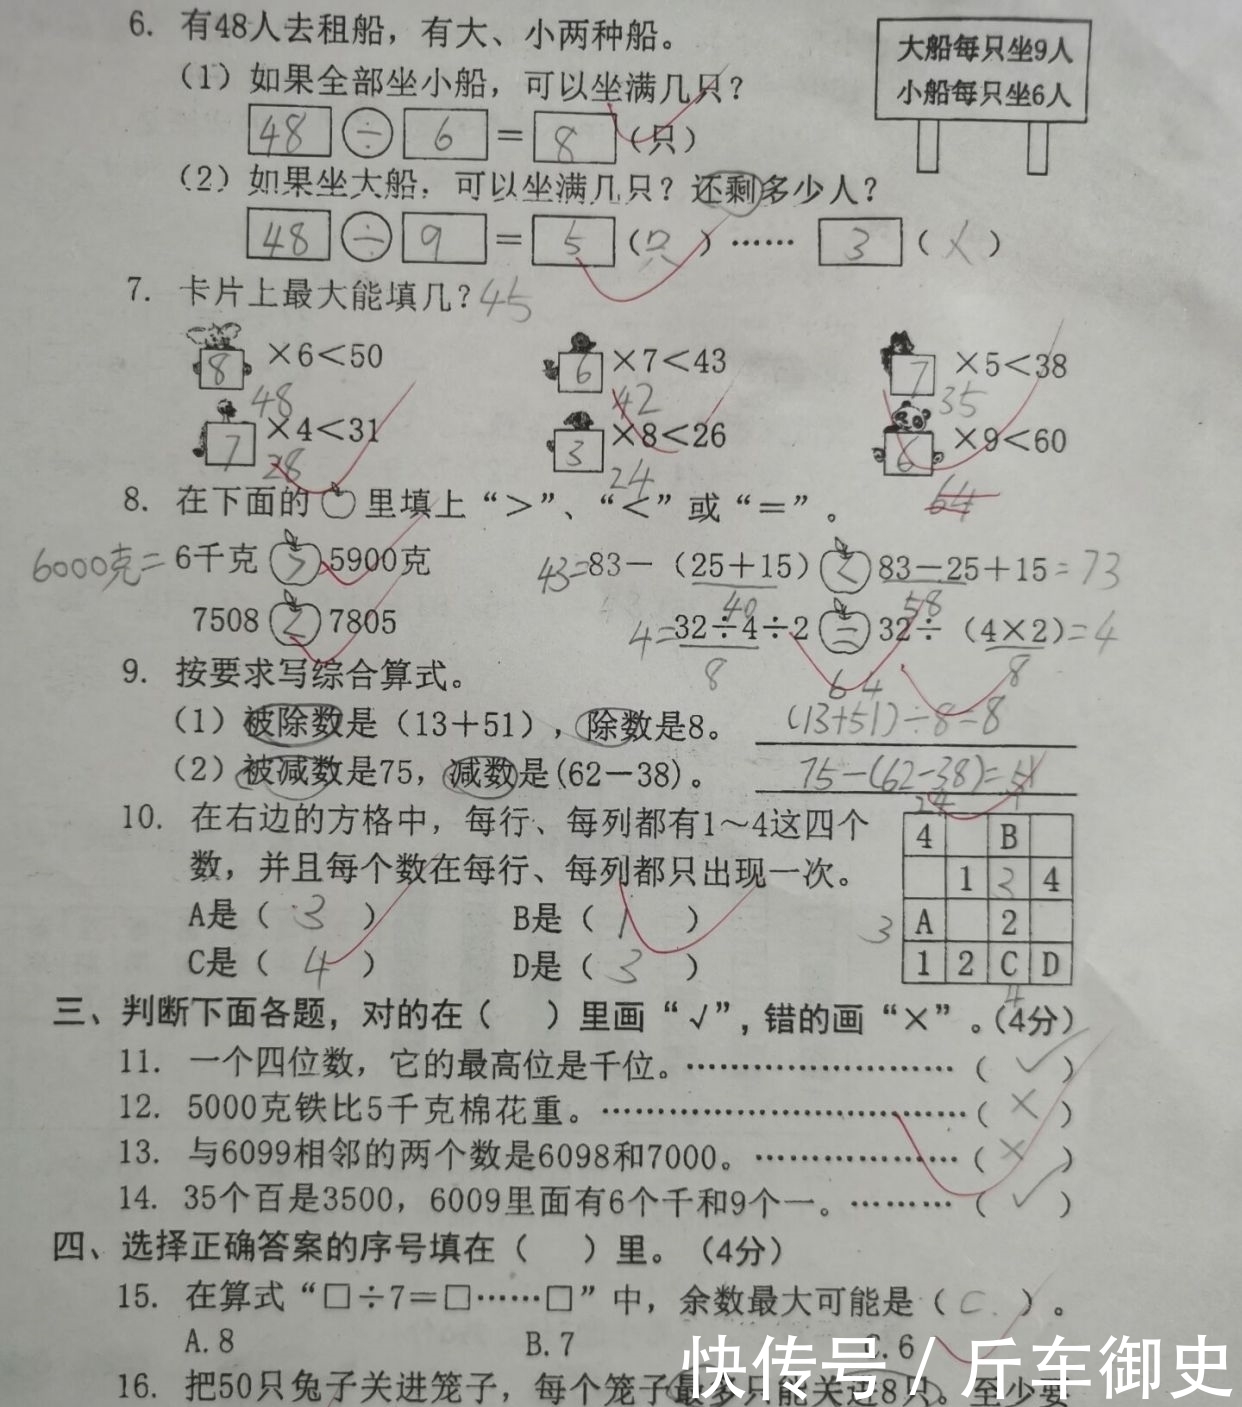 6. 有48人去租船，有大、小两种船。
大船每只坐9人
小船每只坐6人
（1）如果全部坐小船，可以坐满几只？
48÷6=8（只）
（2）如果坐大船，可以坐满几只？还剩多少人？
48÷9=5（只）……3（人）
7. 卡片上最大能填几？45
8×6＜50 6×7＜43 7×5＜38
48 42 35
7×4＜31 3×8＜26 6×9＜60
28 24 64
8. 在下面的 里填上“＞”、“＜”或“＝”。
6000克= 6千克＞5900克 43=83－（25＋15）＜83－25＋15=73
40 58
7508＜7805 4=32÷4÷2＝32÷（4×2）=4
8 64 8
9. 按要求写综合算式。
（1）被除数是（13＋51），除数是8。 (13+51)÷8=8
（2）被减数是75，减数是(62－38)。 75-(62-38)=51
24
10. 在右边的方格中，每行、每列都有1～4这四个
数，并且每个数在每行、每列都只出现一次。
A是（3） B是（1）
C是（4） D是（3）
4 B
1 3 4
3 A 2
1 2 C D
4
三、判断下面各题，对的在（ ）里画“√”，错的画“×”。（4分）
11. 一个四位数，它的最高位是千位。……………………（✓）
12. 5000克铁比5千克棉花重。……………………………（×）
13. 与6099相邻的两个数是6098和7000。………………（×）
14. 35个百是3500，6009里面有6个千和9个一。………（✓）
四、选择正确答案的序号填在（ ）里。（4分）
15. 在算式“□÷7＝□……□”中，余数最大可能是（C.）。
A.8 B.7 C.6
16. 把50只兔子关进笼子，每个笼子最多只能关进8只。至少要
快传号 / 斤车御史